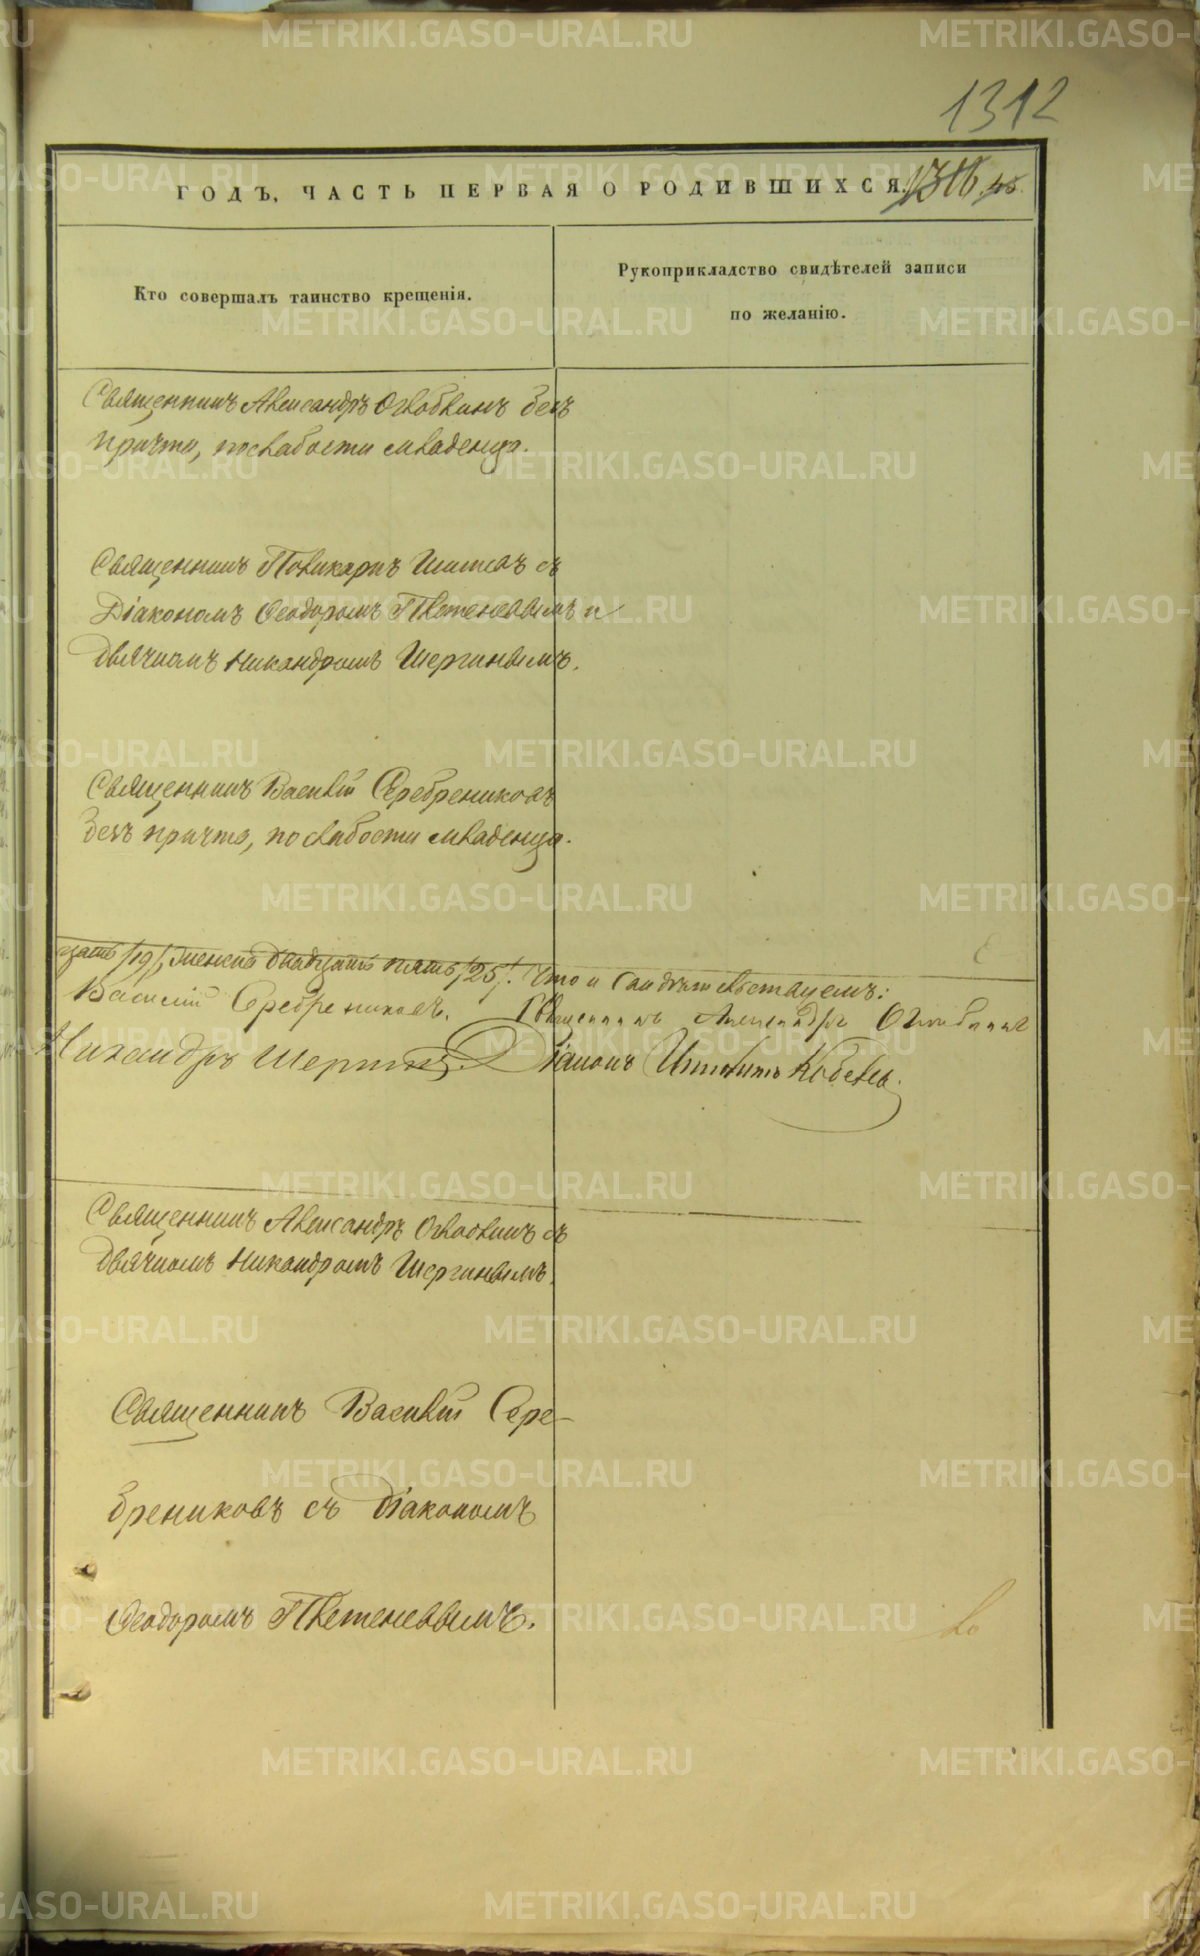 1312
ГОДЪ, ЧАСТЬ ПЕРВАЯ О РОДИВШИХСЯ.
Кто совершалъ таинство крещенія.
Рукоприкладство свидѣтелей записи
по желанію.
Священникъ Александръ Оглоблинъ безъ
причта, по слабости младенца.
Священникъ Поликарпъ Шишевъ съ
Діакономъ Ѳеодоромъ Плетеневымъ и
дьячкомъ Никандромъ Шергинымъ.
Священникъ Василій Серебрениковъ
безъ причта, по слабости младенца.
/19/, женска двадцать пять /25/. Что и свидѣтельствуемъ:
Василій Серебрениковъ. Священникъ Александръ Оглоблинъ
Никандръ Шергинъ. Діаконъ Ипполитъ
Священникъ Александръ Оглоблинъ съ
дьячкомъ Никандромъ Шергинымъ.
Священникъ Василій Сере-
брениковъ съ Діакономъ
Ѳеодоромъ Плетеневымъ.
METRIKI.GASO-URAL.RU